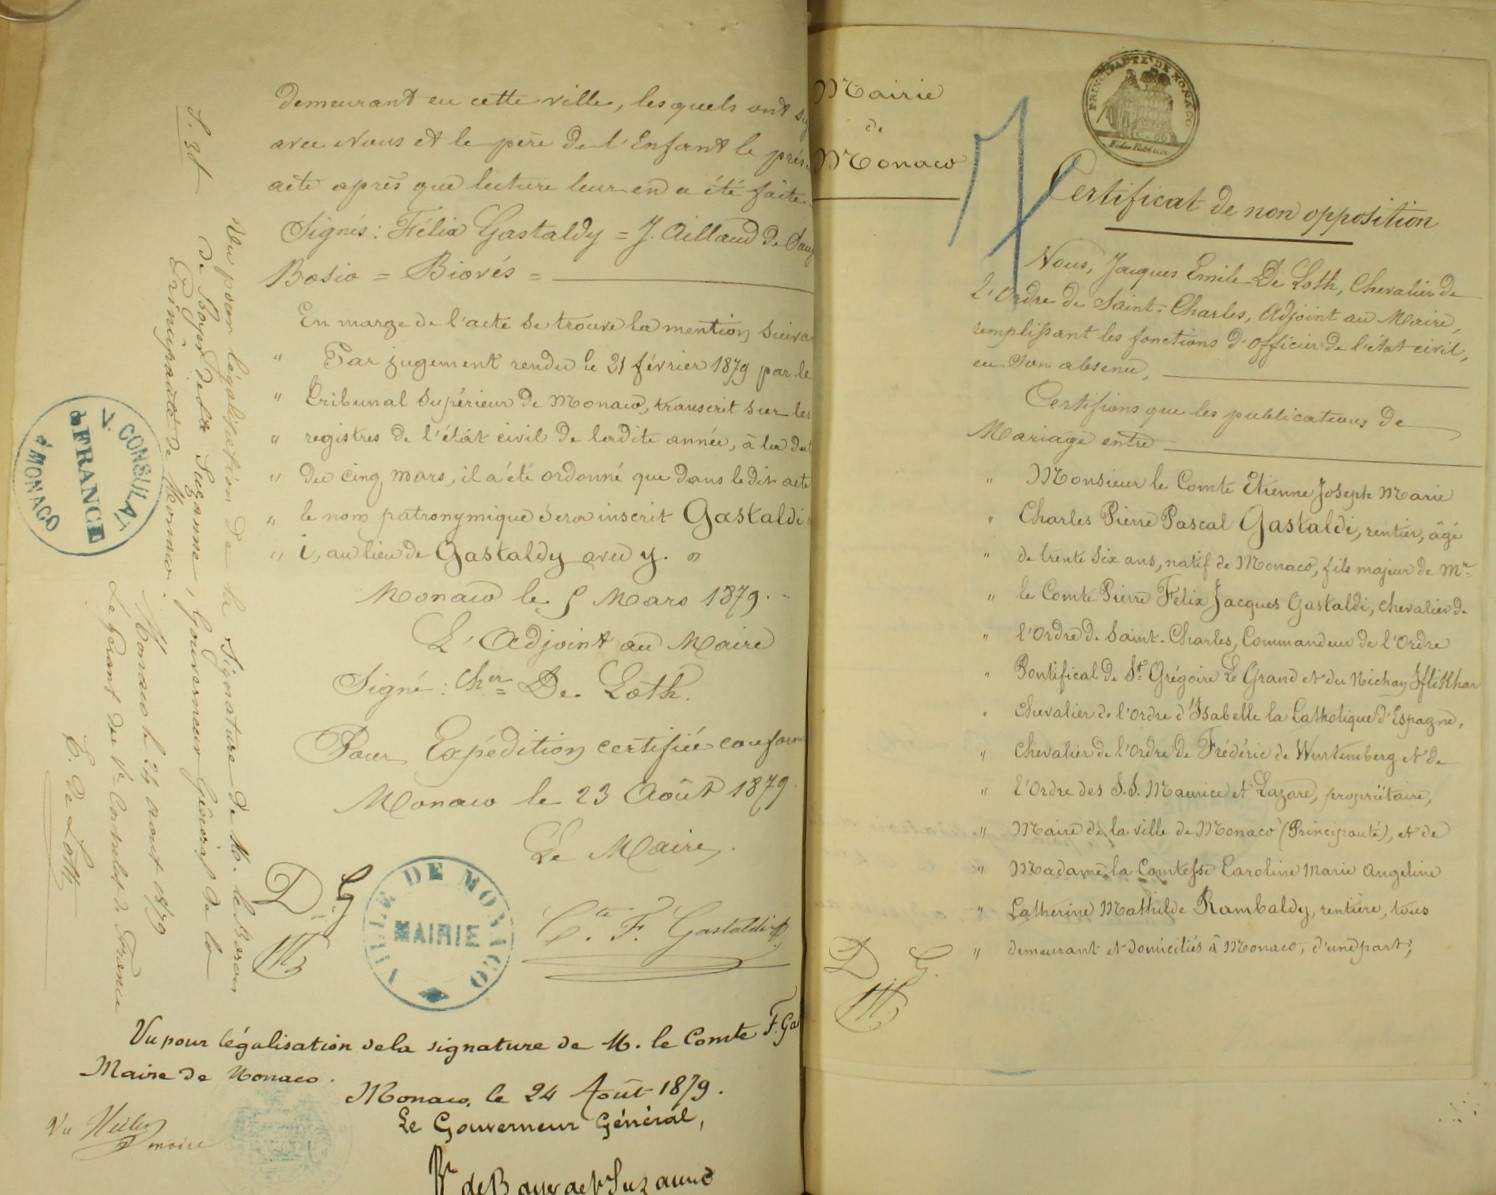 demeurant en cette ville, lesquels ont
avec Nous et le père de l'Enfant le prés
acte après que lecture leur en a été faite
Signés : Félix Gastaldy = J. Aillaud de
Bosio = Biovés =
En marge de l'acte se trouve la mention suiva
" Par jugement rendu le 21 février 1879 par le
" Tribunal Supérieur de Monaco, transcrit sur les
" registres de l'état civil de ladite année, à la da
" du cinq mars, il a été ordonné que dans le dit acte
" le nom patronymique sera inscrit Gastaldi
" i, au lieu de Gastaldy avec y. "
Monaco le 5 Mars 1879.
L'Adjoint au Maire
Signé : Cher De Loth.
Pour Expédition certifiée confor
Monaco le 23 Août 1879
Le Maire,
Cte. F. Gastaldi
VILLE DE MONACO
MAIRIE
Vu pour légalisation de la signature de M. le Comte F. Ga
Maire de Monaco.
Monaco, le 24 Août 1879.
Le Gouverneur Général,
Bn de Boyer de Ste Suzanne
Vu
Vu pour légalisation de la signature de M. le Baron
de Boyer de Ste Suzanne, Gouverneur Général de la
Principauté de Monaco.
Monaco le 24 août 1879
Le Gérant du Vce Consulat de France
E. de Loth
V. CONSULAT
DE FRANCE
MONACO
Mairie
de
Monaco
PRINCIPAUTÉ DE MONACO
Certificat de non opposition
Nous, Jacques Emile De Loth, Chevalier de
l'Ordre de Saint-Charles, Adjoint au Maire,
remplissant les fonctions d'officier de l'état civil,
en son absence,
Certifions que les publications de
Mariage entre
" Monsieur le Comte Etienne Joseph Marie
" Charles Pierre Pascal Gastaldi, rentier, âgé
" de trente six ans, natif de Monaco, fils majeur de Mr
" le Comte Pierre Félix Jacques Gastaldi, chevalier de
" l'Ordre de Saint-Charles, Commandeur de l'Ordre
" Pontifical de St Grégoire Le Grand et du Nichan Iftikhar
" Chevalier de l'Ordre d'Isabelle la Catholique d'Espagne,
" Chevalier de l'Ordre de Frédéric de Wurtemberg et de
" l'Ordre des S.S. Maurice et Lazare, propriétaire,
" Maire de la ville de Monaco (Principauté), et de
" Madame la Comtesse Caroline Marie Angeline
" Catherine Mathilde Rambaldy, rentière, tous
" demeurant et domiciliés à Monaco, d'une part;